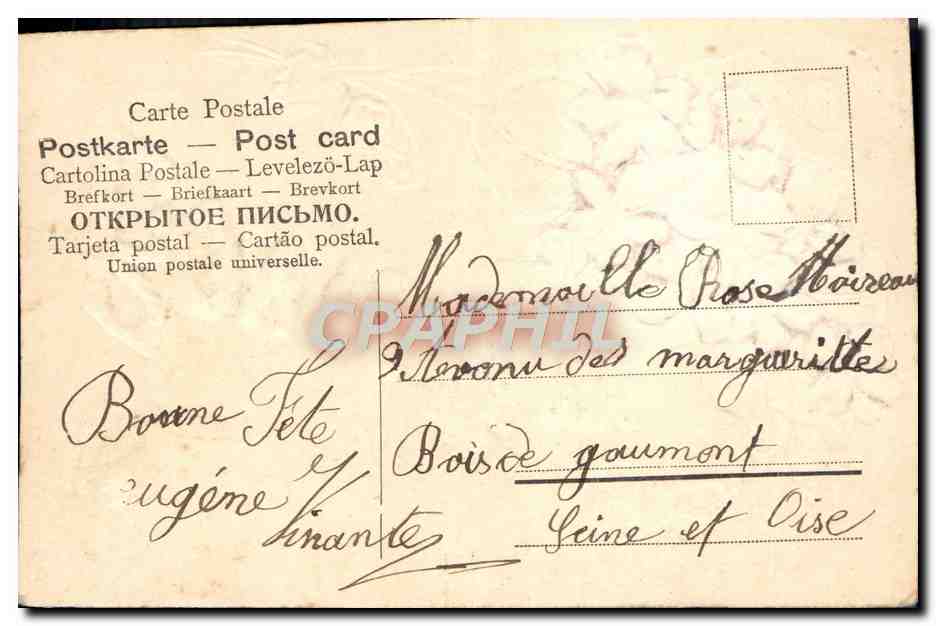 Carte Postale
Postkarte — Post card
Cartolina Postale — Levelezö-Lap
Brefkort — Briefkaart — Brevkort
ОТКРЫТОЕ ПИСЬМО.
Tarjeta postal — Cartão postal.
Union postale universelle.
Mademoiselle Rose Moizeau
9 Avonu des marguerittes
Bois de gaumont
Seine et Oise
Bonne Fête
eugéne
Vinante
CPAPHIL